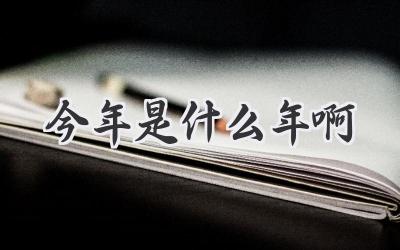 今年是什么年啊